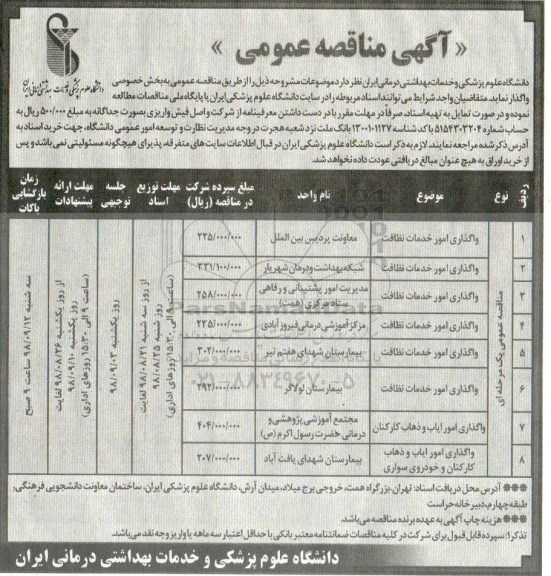 « آگهی مناقصه عمومی »
دانشگاه علوم پزشکی و خدمات بهداشتی درمانی ایران
دانشگاه علوم پزشکی وخدمات بهداشتی درمانی ایران نظر دارد موضوعات مشروحه ذیل را از طریق مناقصه عمومی به بخش خصوصی
واگذار نماید. متقاضیان واجد شرایط می توانند اسناد مربوطه را در سایت دانشگاه علوم پزشکی ایران یا پایگاه ملی مناقصات مطالعه
نموده و در صورت تمایل به تهیه اسناد، صرفاً در مهلت مقرر با در دست داشتن معرفینامه از شرکت و اصل فیش واریزی بصورت جداگانه به مبلغ ۵۰۰/۰۰۰ ریال به
حساب شماره ۵۱۵۴۳۰۳۲۰۴ با کد شناسه ۱۳۰۰۱۰۱۱۲۷ بانک ملت نزد شعبه هجرت در وجه مدیریت نظارت و توسعه امور عمومی دانشگاه، جهت خرید اسناد به
آدرس ذکر شده مراجعه نمایند. لازم به ذکر است دانشگاه علوم پزشکی ایران در قبال اطلاعات سایت های متفرقه، پذیرای هیچگونه مسئولیتی نمی باشد و پس
از خرید اوراق به هیچ عنوان مبالغ دریافتی عودت داده نخواهد شد.
ردیف نوع موضوع نام واحد مبلغ سپرده شرکت در مناقصه (ریال) مهلت توزیع اسناد جلسه توجیهی مهلت ارائه پیشنهادات زمان بازگشایی پاکات
۱ واگذاری امور خدمات نظافت معاونت پردیس بین الملل ۲۲۵/۰۰۰/۰۰۰
۲ واگذاری امور خدمات نظافت شبکه بهداشت و درمان شهریار ۳۳۱/۱۰۰/۰۰۰
۳ واگذاری امور خدمات نظافت مدیریت امور پشتیبانی و رفاهی ستاد مرکزی (همت) ۲۵۸/۰۰۰/۰۰۰
۴ واگذاری امور خدمات نظافت مرکز آموزشی درمانی فیروز آبادی ۲۳۵/۰۰۰/۰۰۰
۵ واگذاری امور خدمات نظافت بیمارستان شهدای هفتم تیر ۳۰۳/۰۰۰/۰۰۰
۶ واگذاری امور خدمات نظافت بیمارستان لولاگر ۲۹۲/۰۰۰/۰۰۰
۷ واگذاری امور ایاب و ذهاب کارکنان مجتمع آموزشی پژوهشی و درمانی حضرت رسول اکرم (ص) ۴۰۴/۰۰۰/۰۰۰
۸ واگذاری امور ایاب و ذهاب کارکنان و خودروی سواری بیمارستان شهدای یافت آباد ۲۰۷/۰۰۰/۰۰۰
مناقصه عمومی یک مرحله ای
از روز سه شنبه ۹۸/۰۸/۲۱ لغایت
روز شنبه ۹۸/۰۸/۲۵
(ساعت ۹ الی ۱۵:۳۰ روزهای اداری)
روز یکشنبه ۹۸/۰۹/۰۳
از روز یکشنبه ۹۸/۰۸/۲۶ لغایت
روز یکشنبه ۹۸/۰۹/۱۰
(ساعت ۹ الی ۱۵:۳۰ روزهای اداری)
سه شنبه ۹۸/۰۹/۱۲ ساعت ۹ صبح
ParsNamadData
۰۲۱-۸۸۳۴۹۶۷۰-۵
*** آدرس محل دریافت اسناد: تهران، بزرگراه همت، خروجی برج میلاد، میدان آرش، دانشگاه علوم پزشکی ایران، ساختمان معاونت دانشجویی فرهنگی،
طبقه چهارم، دبیرخانه حراست
*** هزینه چاپ آگهی به عهده برنده مناقصه می باشد.
تذکر۱: سپرده قابل قبول برای شرکت در کلیه مناقصات ضمانتنامه معتبر بانکی با حداقل اعتبار سه ماهه یا واریز وجه نقد می باشد.
دانشگاه علوم پزشکی و خدمات بهداشتی درمانی ایران